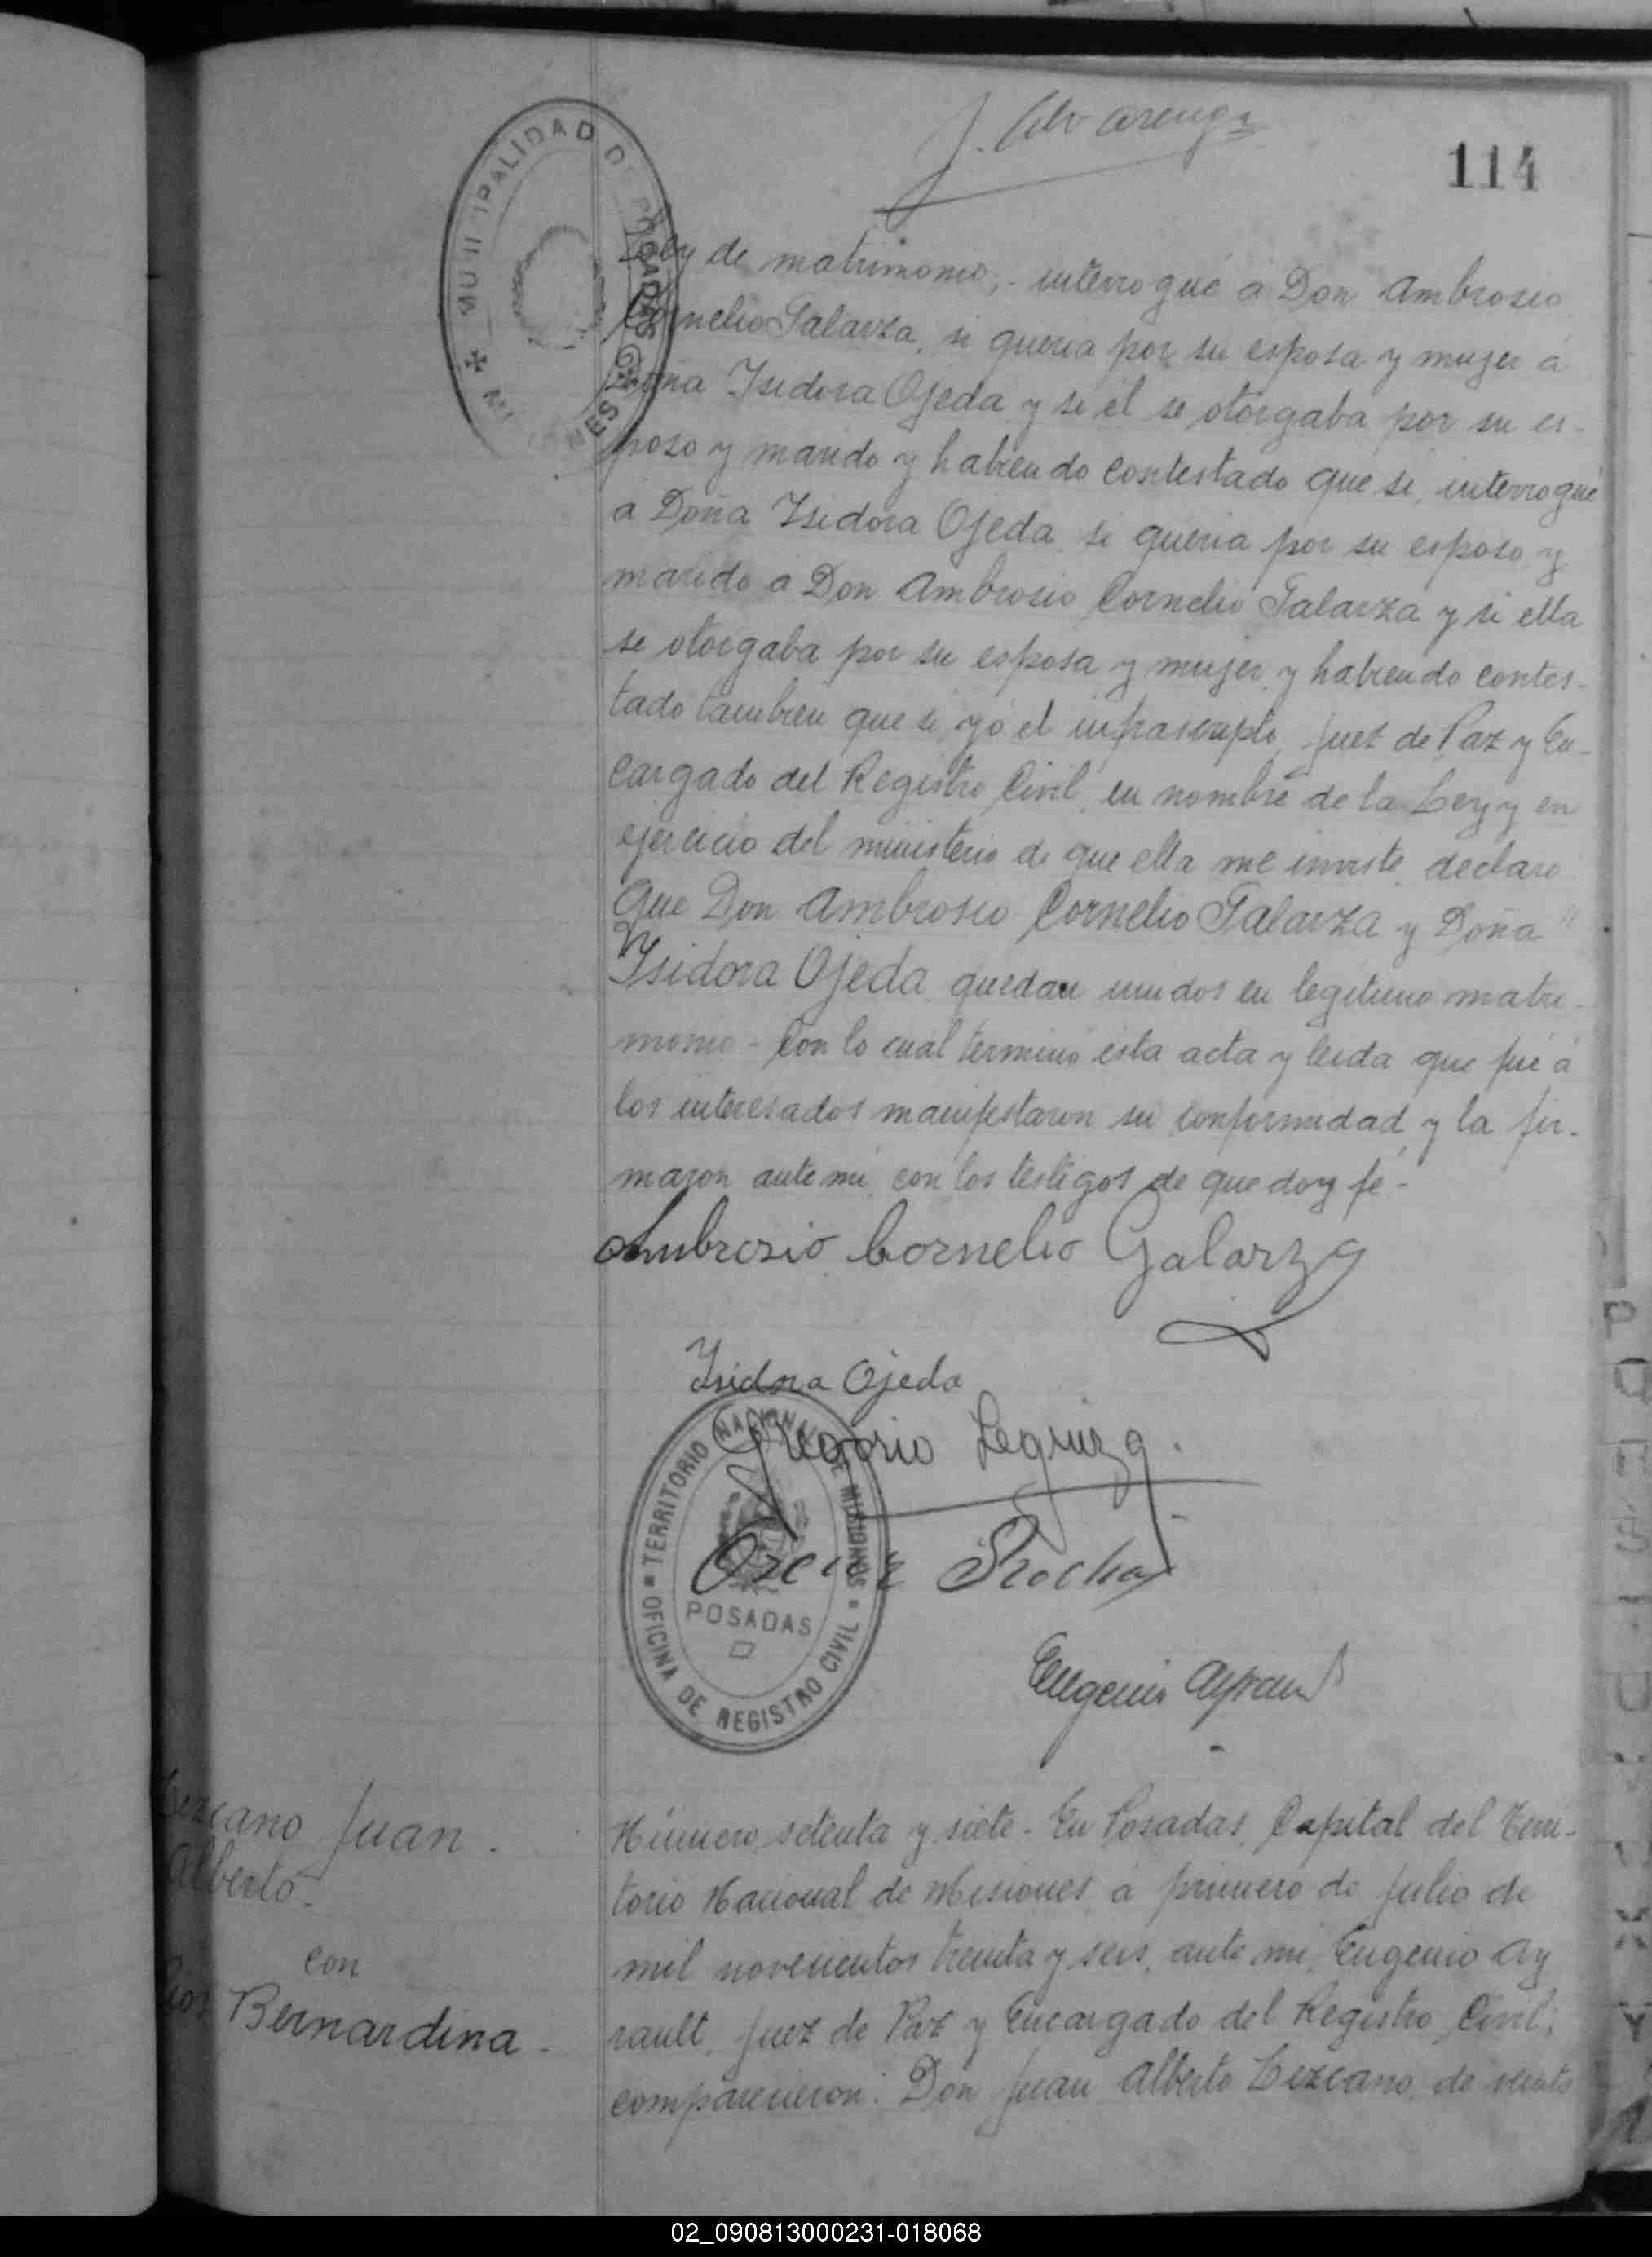 J. Alvarenga
114
MUNICIPALIDAD DE POSADAS
MISIONES
Ley de matrimonio; - interrogué a Don Ambrosio
Cornelio Galarza, si queria por su esposa y mujer á
Doña Isidora Ojeda y si él se otorgaba por su es-
poso y marido y habiendo contestado que si, interrogué
a Doña Isidora Ojeda si queria por su esposo y
marido a Don Ambrosio Cornelio Galarza y si ella
se otorgaba por su esposa y mujer, y habiendo contes-
tado tambien que si, yó el infrascripto, Juez de Paz y En-
cargado del Registro Civil, en nombre de la Ley y en
ejercicio del ministerio de que ella me inviste, declaro
que Don Ambrosio Cornelio Galarza y Doña "
Isidora Ojeda quedan unidos en legitimo matri-
monio - Con lo cual terminó esta acta y leida que fué á
los interesados manifestaron su conformidad y la fir-
maron ante mi con los testigos de que doy fé -
Ambrosio Cornelio Galarza
Isidora Ojeda
Gregorio Leguiza
Oscar Rocha
TERRITORIO NACIONAL DE MISIONES
POSADAS
OFICINA DE REGISTRO CIVIL
Eugenio Ayrault
Lezcano Juan.
Alberto.
con
Rios Bernardina -
Número setenta y siete - En Posadas, Capital del Terri-
torio Nacional de Misiones, a primero de Julio de
mil novecientos treinta y seis, ante mi, Eugenio Ay
rault, Juez de Paz y Encargado del Registro Civil,
comparecieron: Don Juan Alberto Lezcano, de
02_090813000231-018068